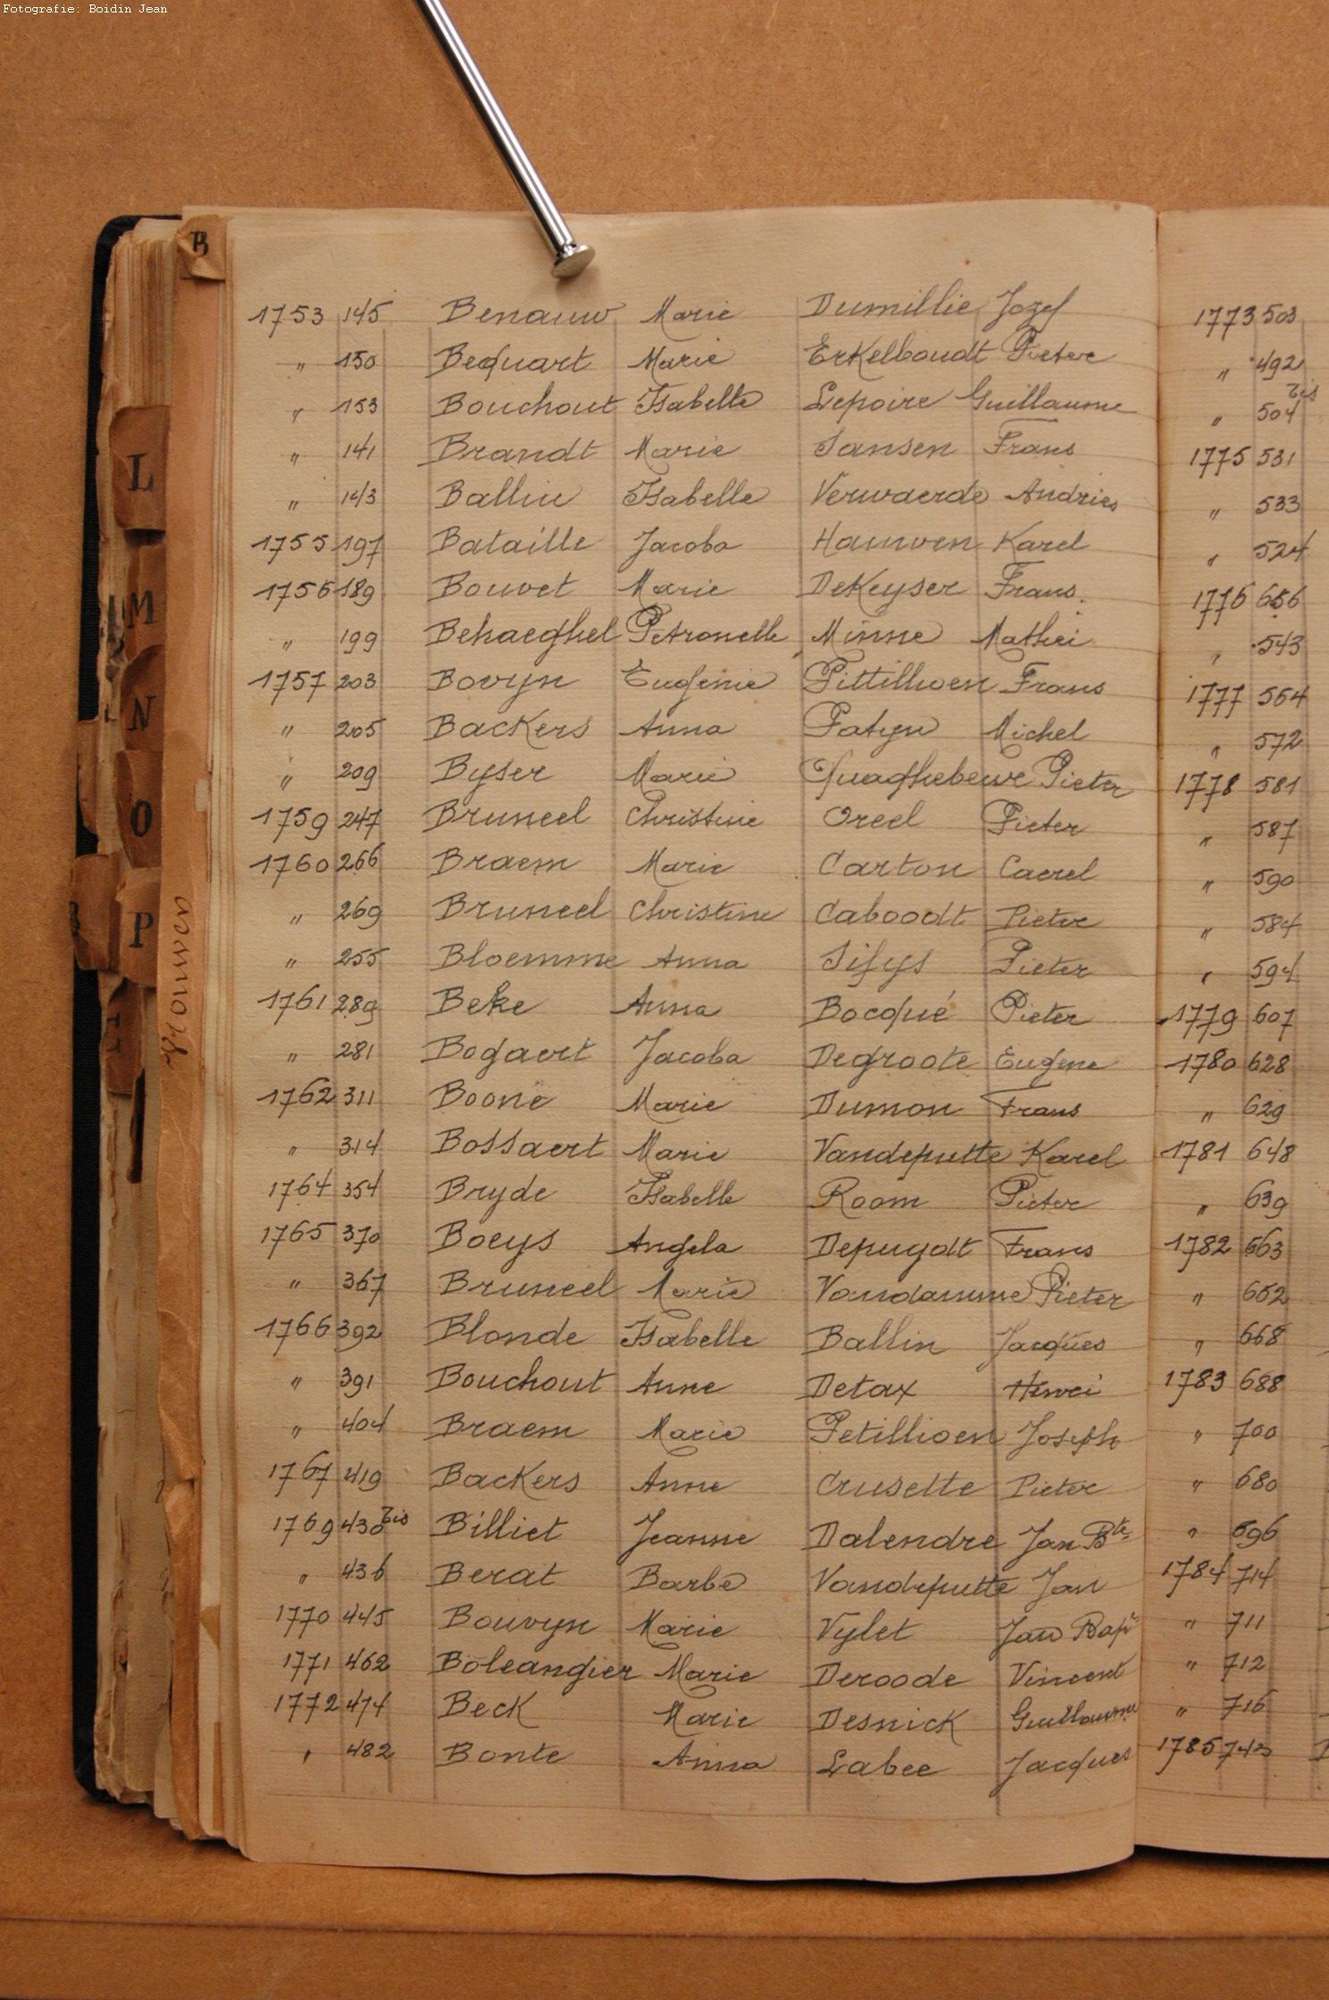 Fotografie: Boidin Jean
B
1753 145 Benauw Marie Dumillie Jozef
" 150 Becquart Marie Erkelboudt Pieter
" 153 Bouchout Isabelle Lepoire Guillaume
" 141 Brandt Marie Jansen Frans
" 143 Balliu Isabelle Verwaerde Andries
1755 197 Bataille Jacoba Hauwen Karel
1756 189 Bouvet Marie DeKeyser Frans.
" 199 Behaeghel Petronelle Minne Mathieu
1757 203 Bovyn Eugenie Pittillioen Frans
" 205 Backers Anna Patyn Michel
" 209 Byser Marie Quaghebeur Pieter
1759 247 Bruneel Christine Oreel Pieter
1760 266 Braem Marie Carton Caerel
" 269 Bruneel Christine Caboodt Pieter
" 255 Bloemme Anna Sifys Pieter
1761 289 Beke Anna Bocqué Pieter
" 281 Bogaert Jacoba Degroote Eugene
1762 311 Boone Marie Dumon Frans
" 314 Bossaert Marie Vandeputte Karel
1764 354 Bryde Isabelle Room Pieter
1765 370 Boeys Angela Depuydt Frans
" 367 Bruneel Marie Vandamme Pieter
1766 392 Blonde Isabelle Ballin Jacques
" 391 Bouchout Anne Detax Henri
" 404 Braem Marie Petillioen Joseph
1767 419 Backers Anne Crusette Pieter
1769 430 bis Billiet Jeanne Dalendre Jan Bte
" 436 Berat Barbe Vandeputte Jan
1770 445 Bouvyn Marie Vylet Jan Bapt
1771 462 Boleangier Marie Deroode Vincent
1772 474 Beck Marie Desnick Guillaume
" 482 Bonte Anna Labee Jacques
1773 503
" 492
" 504 bis
1775 531
" 533
" 524
1776 656
" 543
1777 564
" 572
1778 581
" 587
" 590
" 584
" 594
1779 607
1780 628
" 629
1781 648
" 639
1782 663
" 652
" 668
1783 688
" 700
" 680
" 696
1784 714
" 711
" 712
" 716
1785 743
L
M
N
O
P
Vrouwen